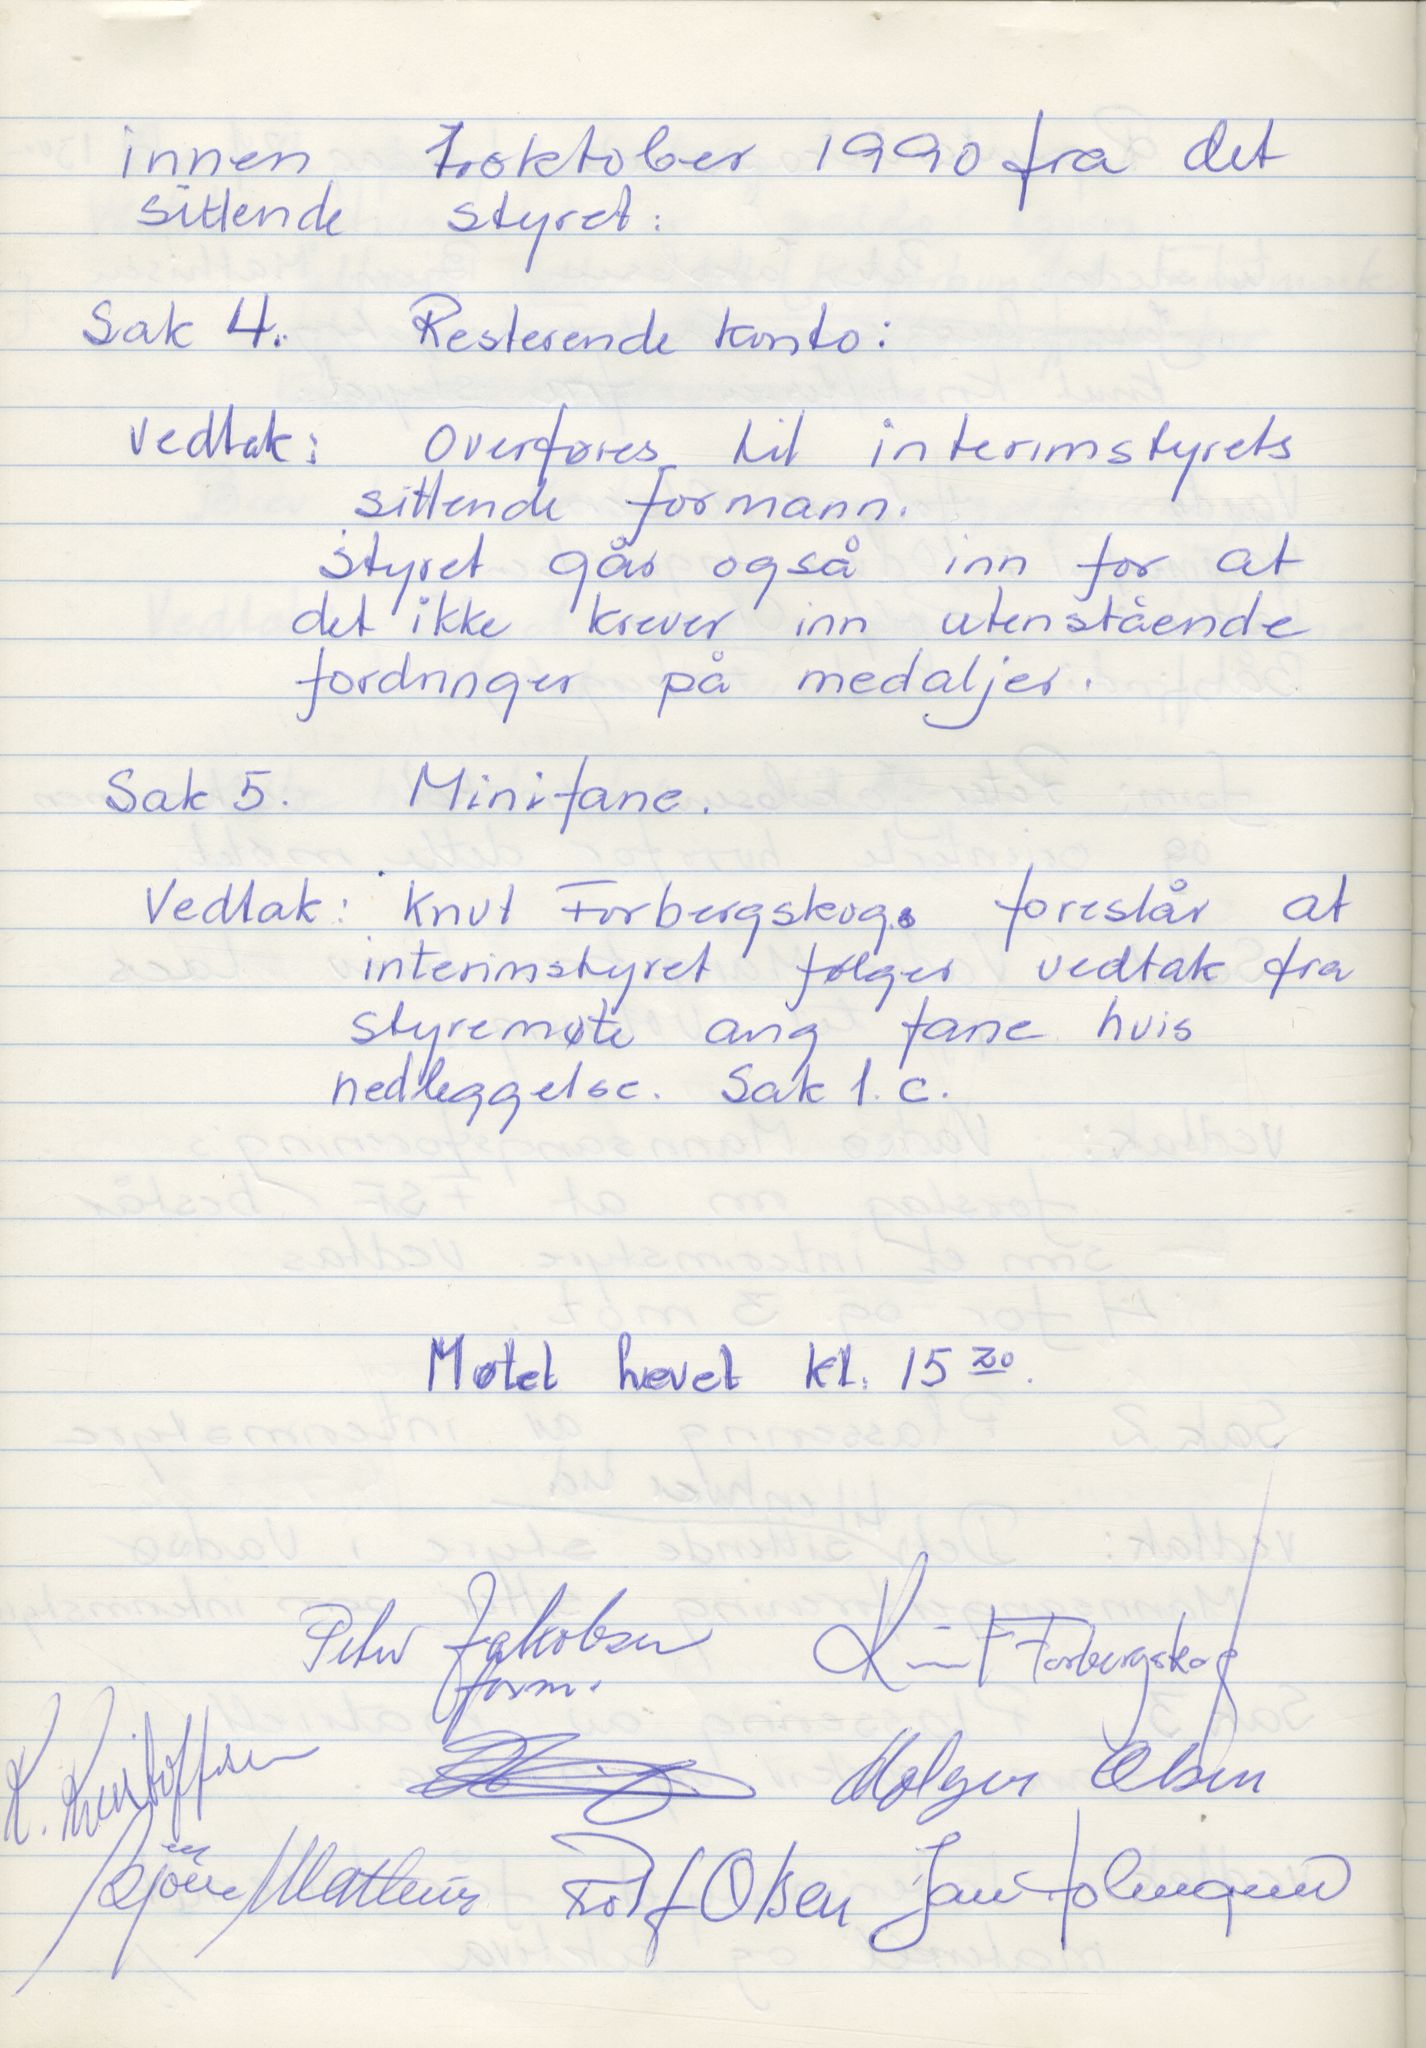 innen 1.oktober 1990 fra det
sittende styret.
Sak 4. Resterende konto:
Vedtak: Overføres til interimstyrets
sittende formann.
styret går også inn for at
det ikke krever inn utenstående
fordringer på medaljer.
Sak 5. Minifane.
Vedtak: Knut Forbergskog. foreslår at
interimstyret følger vedtak fra
styremøte ang fane hvis
nedleggelse. Sak 1.c.
Møtet hevet kl. 15 20.
Peter Jakobsen Knut Forbergskog
form.
Holger Olsen
Rolf Olsen